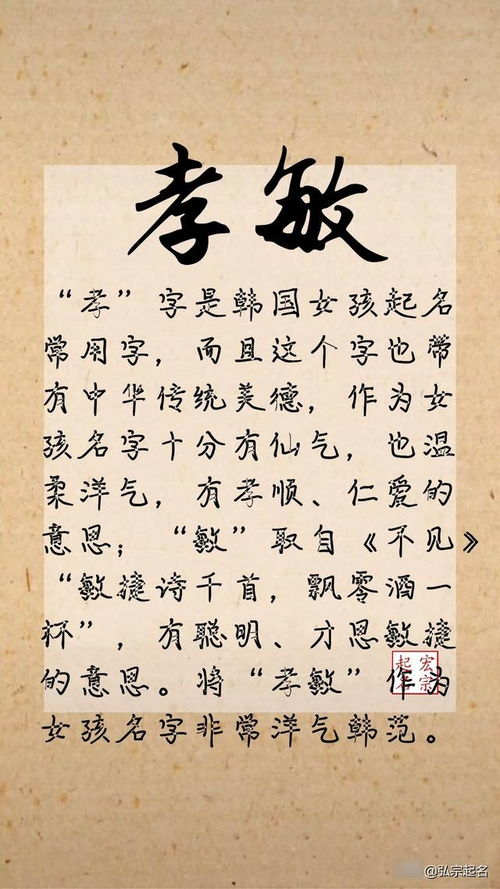 孝敏
“孝”字是韩国女孩起名
常用字，而且这个字也带
有中华传统美德，作为女
孩名字十分有仙气，也温
柔洋气，有孝顺、仁爱的
意思；“敏”取自《不见》
“敏捷诗千首，飘零酒一
杯”，有聪明、才思敏捷
的意思。将“孝敏”作为
女孩名字非常洋气韩范。
宏宗起名
@弘宗起名